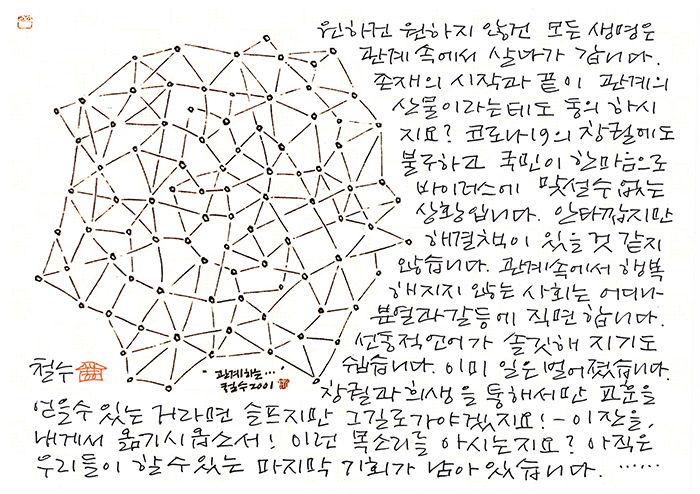 원하건 원하지 않건 모든 생명은
관계 속에서 살다가 갑니다.
존재의 시작과 끝이 관계의
산물이라는데도 동의 하시
지요? 코로나19의 창궐에도
불구하고 국민이 한마음으로
바이러스에 맞설수 없는
상황입니다. 안타깝지만
해결책이 있을것 같지
않습니다. 관계속에서 행복
해지지 않는 사회는 어디나
분열과 갈등에 직면 합니다.
선동적언어가 솔깃해 지기도
쉽습니다. 이미 일은 벌어졌습니다.
창궐과 희생을 통해서만 교훈을
얻을수 있는 거라면 슬프지만 그길로가야겠지요! - 이잔을,
내게서 옮기시옵소서! 이런 목소리를 아시는지요? 아직은
우리들이 할 수 있는 마지막 기회가 남아 있습니다. ……
철수
"관계하는…"
철수 2001